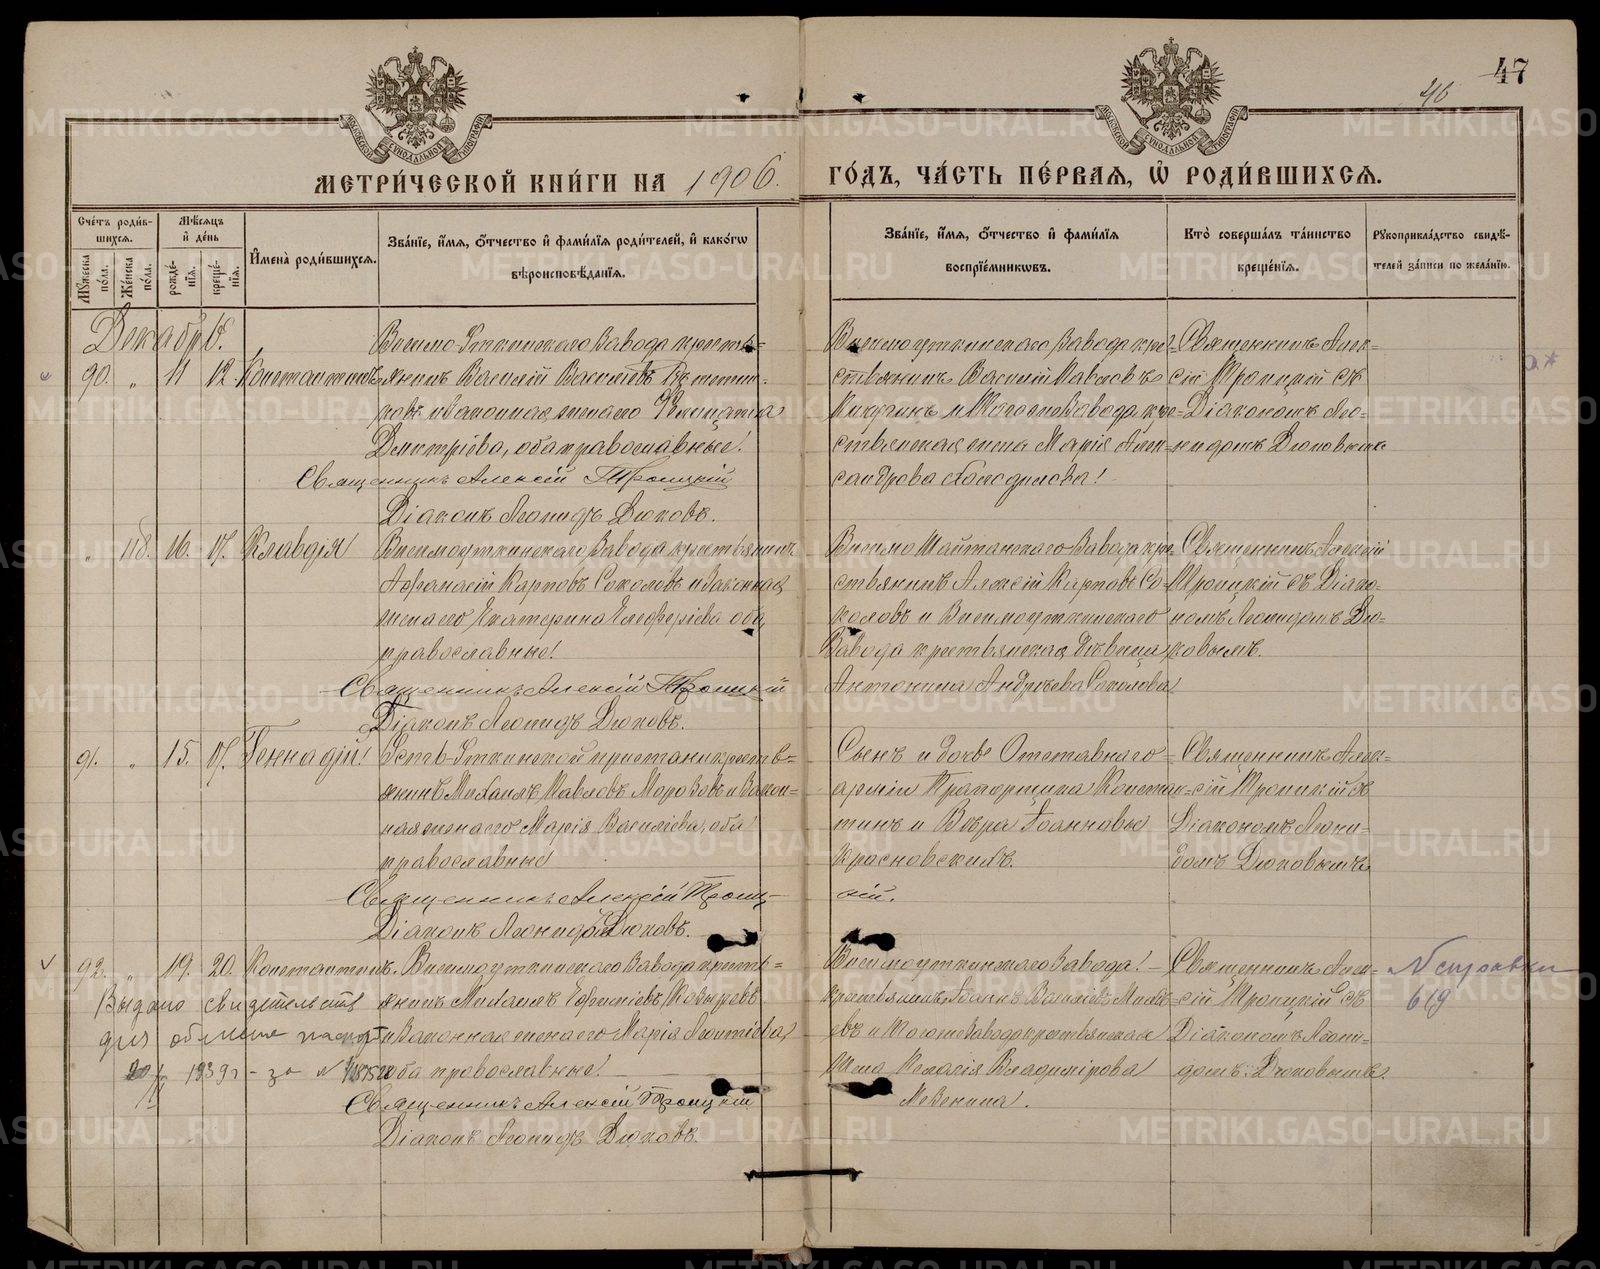 47
46
МЕТРИ́ЧЕСКОЙ КНИ́ГИ НА 1906.
ГО́ДЪ, ЧА́СТЬ ПЕ́РВАѦ, Ѡ҆ РОДИ́ВШИХСѦ.
Сче́тъ роди́вшихсѧ.
Мꙋ́жеска по́ла.
Же́нска по́ла.
Мѣ́сѧцъ и҆ де́нь
рожде́нїѧ.
креще́нїѧ.
И҆мена̀ роди́вшихсѧ.
Зва́нїе, и҆́мѧ, ѻ҆́тчество и҆ фами́лїѧ роди́телей, и҆ како́гѡ
вѣроисповѣ́данїѧ.
Зва́нїе, и҆́мѧ, ѻ҆́тчество и҆ фами́лїѧ
воспрїе́мникѡвъ.
Кто̀ соверша́лъ та́инство
креще́нїѧ.
Рꙋкоприкла́дство свидѣ́-
телей за́писи по жела́нїю.
Декабрь.
90. „ 11 12. Константинъ
Висимо-Уткинскаго Завода кресть-
янинъ Василій Васильевъ
ковъ и законная жена его
Дмитріева, оба православные!
Священникъ Алексій Троицкій
Діаконъ Леонидъ Дюковъ.
Висимоуткинскаго Завода кре-
стьянинъ Василій Павловъ
Кичигинъ и Того же Завода кре-
стьянская жена Марія Алек-
сандрова
Священникъ Алек-
сій Троицкій съ
Діакономъ Лео-
нидомъ Дюковымъ
„ 118. 16. 17. Клавдія
Висимоуткинскаго Завода крестьянинъ
Афанасій Карповъ Соколовъ и Законная
жена его Екатерина Елеферіева оба
православные!
Священникъ Алексій Троицкій
Діаконъ Леонидъ Дюковъ.
Висимо Шайтанскаго Завода кре-
стьянинъ Алексій Карповъ Со-
коловъ и Висимоуткинскаго
Завода крестьянская дѣвица
Антонина Андреева Соколова
Священникъ Алексій
Троицкій съ Діако-
номъ Леонидомъ Дю-
ковымъ.
91. „ 15. 17. Геннадій!
Усть-Уткинской пристани кресть-
янинъ Михаилъ Павловъ Морозовъ и Закон-
ная жена его Марія Васильева, оба
православные
Священникъ Алексій Троиц-
кій.
Діаконъ Леонидъ Дюковъ.
Сынъ и дочь Отставнаго
арміи Прапорщика Констан-
тинъ и Вѣра Іоанновы
Красновскихъ.
Священникъ Алек-
сій Троицкій съ
Діакономъ Леони-
домъ Дюковымъ
92. „ 19. 20. Константинъ.
Висимоуткинскаго Завода кресть-
янинъ Михаилъ Ефимовъ
и Законная жена его Марія Леонтіева,
оба православные!
Священникъ Алексій Троицкій
Діаконъ Леонидъ Дюковъ.
Выдано свидетельств
для обмена паспорт
1939 г - за №
Висимоуткинскаго Завода!
крестьянинъ Іоаннъ Васильевъ
евъ и Того же Завода крестьянская
жена Пелагія Владимірова
Мезенина.
Священникъ Алек-
сій Троицкій съ
Діакономъ Леони-
домъ Дюковымъ.
N справки
619
METRIKI.GASO-URAL.RU